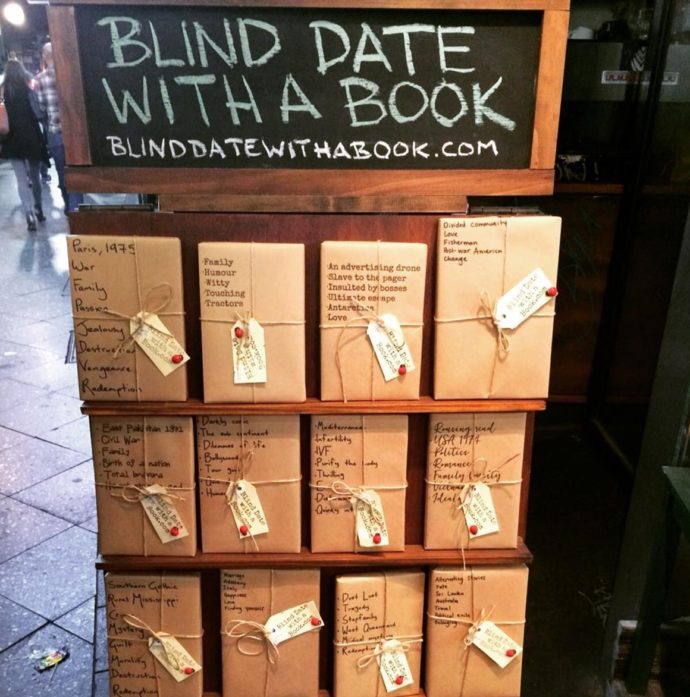 BLIND DATE
WITH A BOOK
BLINDDATEWITHABOOK.COM
Paris, 1975
War
Family
Passion
Jealousy
Destruction
Vengeance
Redemption
Blind Date
with a
Book.com
·Family
·Humour
·Witty
·Touching
·Tractors
·An advertising drone
·Slave to the pager
·Insulted by bosses
·Ultimate escape
·Antarctica
·Love
Blind Date
with a
Book.com
Divided community
Love
Fisherman
Post-war America
Change
Blind Date
with a
Book.com
· East Pakistan
· Civil War
· Family
· Birth of a nation
· Total
Blind Date
with a
Book.com
· Darkly comic
· The sub continent
· Dilemmas of life
· Bollywood
· Tour
Blind Date
with a
Book.com
· Mediterranean
· Infertility
· IVF
· Purify the body
· Thrilling
· Quirky
USA 1974
Politics
Romance
Family
Ideals
Blind Date
with a
Book.com
Southern Gothic
Rural Mississippi
Mystery
Guilt
Morality
Destruction
Redemption
Blind Date
with a
Book.com
Marriage
Adultery
Italy
Happiness
Love
Finding yourself
Blind Date
with a
Book.com
· Dust
· Tragedy
· Stepfamily
· West Queensland
· Medical mystery
· Redemption
Alternating stories
Fate
Sri Lanka
Australia
Travel
Political exile
Belonging
Blind Date
with a
Book.com